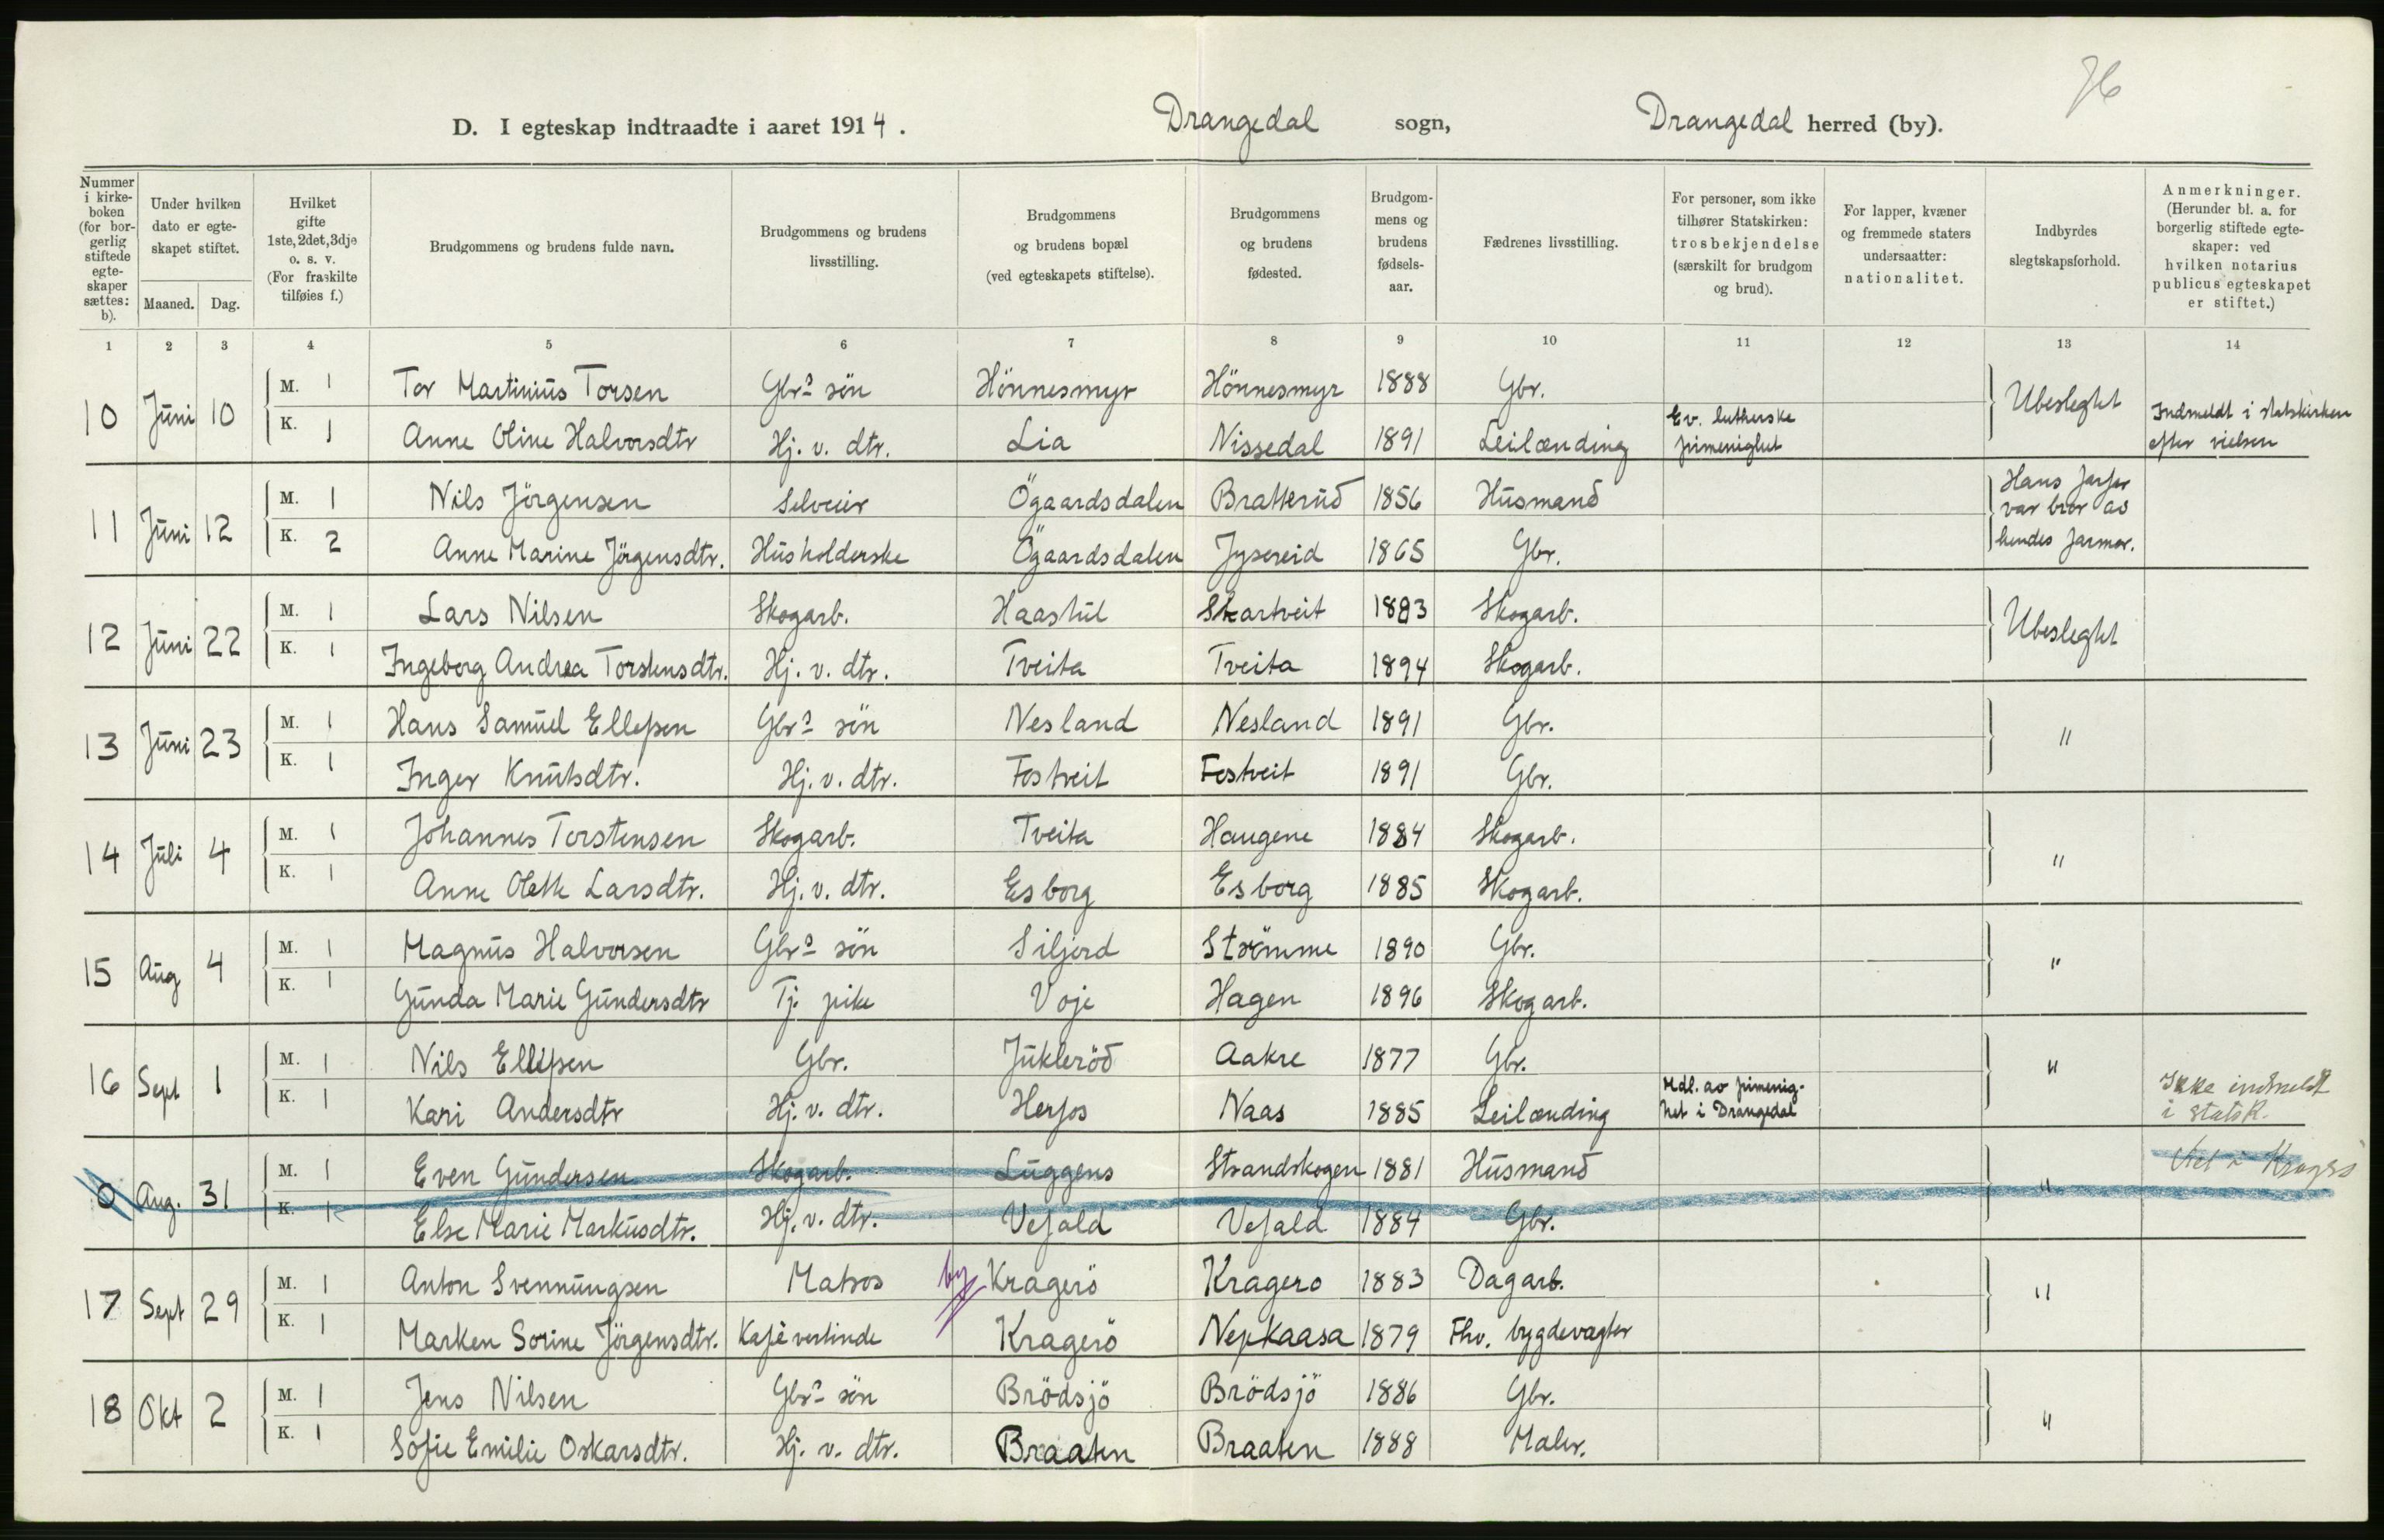 76
D. I egteskap indtraadte i aaret 1914. Drangedal sogn, Drangedal herred (by).
Nummer i kirkeboken (for borgerlig stiftede egteskaper sættes: b).
Under hvilken dato er egteskapet stiftet.
Maaned. Dag.
Hvilket gifte 1ste, 2det, 3dje o. s. v. (For fraskilte tilføies f.)
Brudgommens og brudens fulde navn.
Brudgommens og brudens livsstilling.
Brudgommens og brudens bopæl (ved egteskapets stiftelse).
Brudgommens og brudens fødested.
Brudgommens og brudens fødselsaar.
Fædrenes livsstilling.
For personer, som ikke tilhører Statskirken: trosbekjendelse (særskilt for brudgom og brud).
For lapper, kvæner og fremmede staters undersaatter: nationalitet.
Indbyrdes slegtskapsforhold.
Anmerkninger. (Herunder bl. a. for borgerlig stiftede egteskaper: ved hvilken notarius publicus egteskapet er stiftet.)
1 2 3 4 5 6 7 8 9 10 11 12 13 14
10 Juni 10 M. 1 Tor Martinius Torsen Gbrs sön Hönnesmyr Hönnesmyr 1888 Gbr. Ubeslegtet
K. 1 Anne Oline Halvorsdtr Hj. v. dtr. Lia Nissedal 1891 Leilænding Ev. lutherske frimenighet Indmeldt i statskirken efter vielsen
11 Juni 12 M. 1 Nils Jörgensen Selveier Ögaardsdalen Bratterud 1856 Husmand Hans farfar var bror av hendes farmor.
K. 2 Anne Marine Jörgensdtr. Husholderske Ögaardsdalen Jysereid 1865 Gbr.
12 Juni 22 M. 1 Lars Nilsen Skogarb. Haastul Skartveit 1883 Skogarb. Ubeslegtet
K. 1 Ingeborg Andrea Torstensdtr. Hj. v. dtr. Tveita Tveita 1894 Skogarb.
13 Juni 23 M. 1 Hans Samuel Ellefsen Gbrs sön Nesland Nesland 1891 Gbr. "
K. 1 Inger Knutsdtr. Hj. v. dtr. Fostveit Fostveit 1891 Gbr.
14 Juli 4 M. 1 Johannes Torstensen Skogarb. Tveita Haugene 1884 Skogarb. "
K. 1 Anne Olette Larsdtr. Hj. v. dtr. Esborg Esborg 1885 Skogarb.
15 Aug 4 M. 1 Magnus Halvorsen Gbrs sön Siljord Strömme 1890 Gbr. "
K. 1 Gunda Marie Gundersdtr Tj. pike Voje Hagen 1896 Skogarb.
16 Sept 1 M. 1 Nils Ellefsen Gbr. Jukleröd Aakre 1877 Gbr. "
K. 1 Kari Andersdtr Hj. v. dtr. Herfos Naas 1885 Leilænding Mdl. av frimenighet i Drangedal Ikke indmeldt i statsk.
0 Aug. 31 M. 1 Even Gundersen Skogarb. Luggens Strandskogen 1881 Husmand " Viet i Kragerø
K. 1 Else Marie Markusdtr. Hj. v. dtr. Vefald Vefald 1884 Gbr.
17 Sept 29 M. 1 Anton Svennungsen Matros by Kragerö Kragero 1883 Dagarb. "
K. 1 Marken Sorine Jörgensdtr. Kafévertinde Kragerö Nepkaasa 1879 Fhv. bygdevægter
18 Okt 2 M. 1 Jens Nilsen Gbrs sön Brödsjö Brödsjö 1886 Gbr. "
K. 1 Sofie Emilie Oskarsdtr. Hj. v. dtr. Braaten Braaten 1888 Maler.